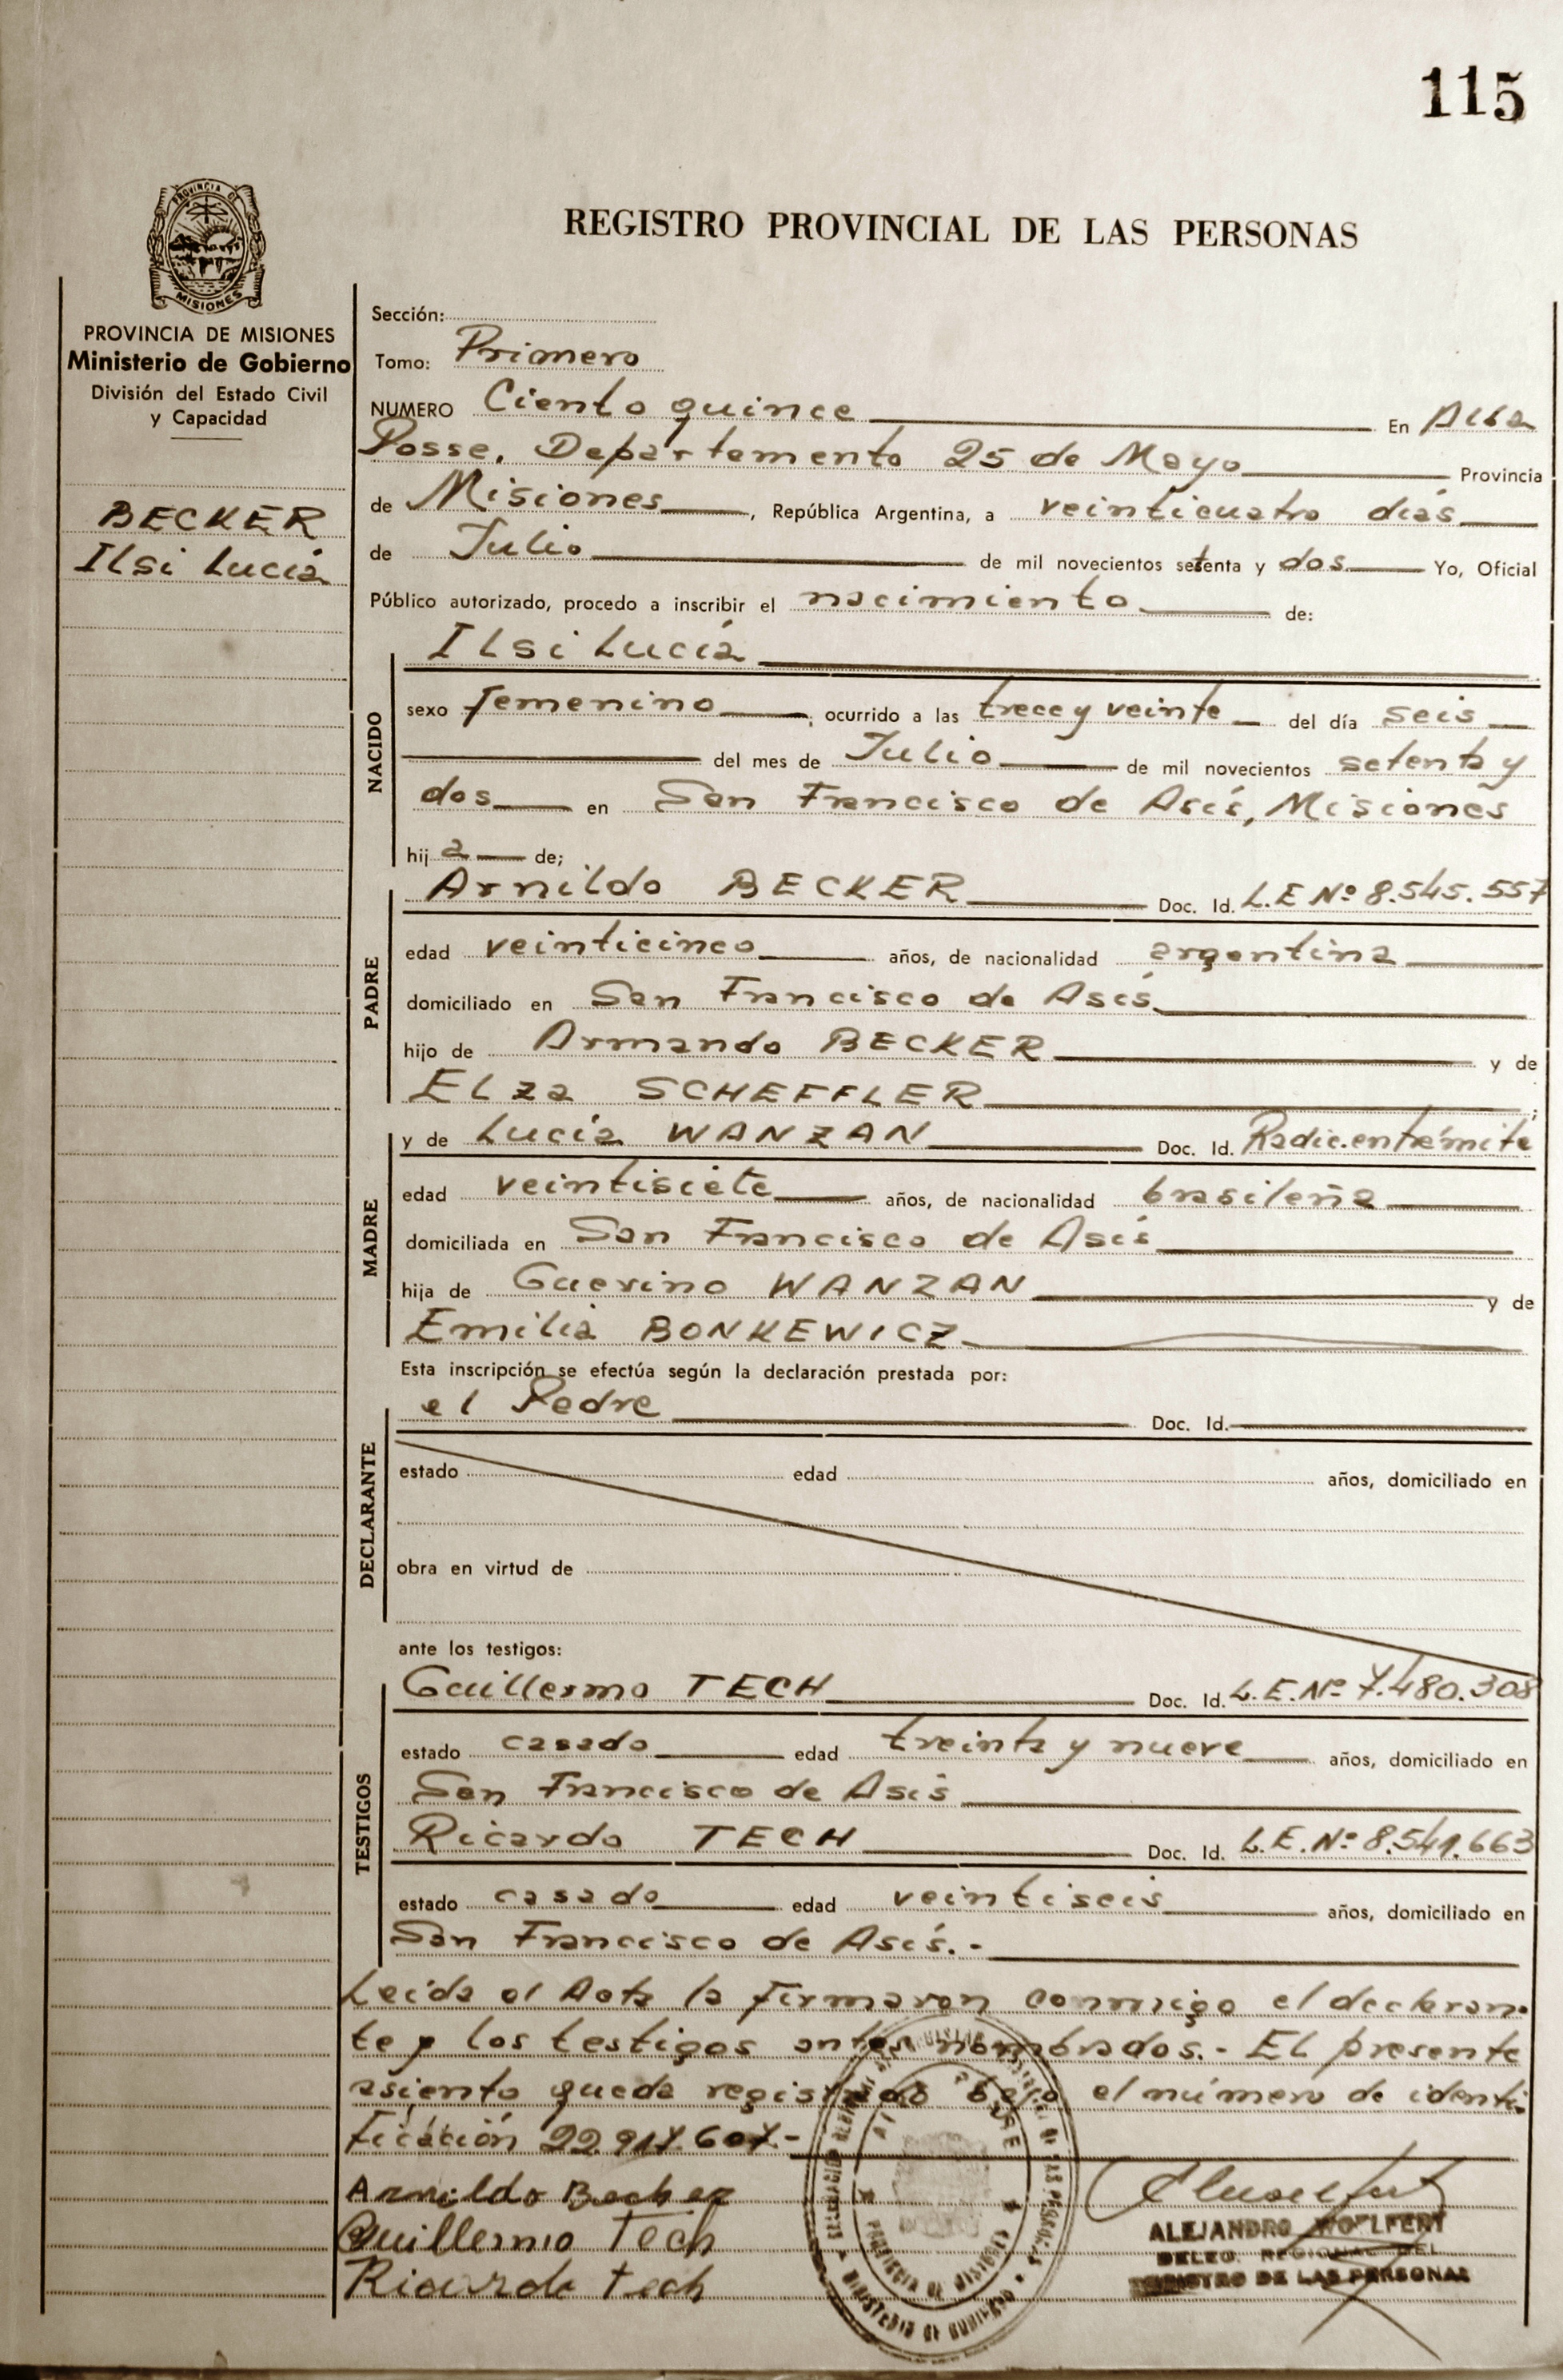 115
PROVINCIA DE MISIONES
REGISTRO PROVINCIAL DE LAS PERSONAS
PROVINCIA DE MISIONES
Ministerio de Gobierno
División del Estado Civil
y Capacidad
BECKER
Ilsi Lucía
Sección:
Tomo: Primero
NUMERO Ciento quince En Alba
Posse, Departamento 25 de Mayo Provincia
de Misiones, República Argentina, a veinticuatro días
de Julio de mil novecientos setenta y dos Yo, Oficial
Público autorizado, procedo a inscribir el nacimiento de:
Ilsi Lucía
NACIDO
sexo femenino, ocurrido a las trece y veinte del día seis
del mes de Julio de mil novecientos setenta y
dos en San Francisco de Asís, Misiones
hija de;
PADRE
Arnildo BECKER Doc. Id. L.E Nº 8.545.557
edad veinticinco años, de nacionalidad argentina
domiciliado en San Francisco de Asís
hijo de Armando BECKER y de
Elza SCHEFFLER;
MADRE
y de Lucía WANZAN Doc. Id. Radic. en trámite
edad veintisiete años, de nacionalidad brasileña
domiciliada en San Francisco de Asís
hija de Guerino WANZAN y de
Emilia BONKEWICZ
Esta inscripción se efectúa según la declaración prestada por:
DECLARANTE
el Padre Doc. Id.
estado edad años, domiciliado en
obra en virtud de
ante los testigos:
TESTIGOS
Guillermo TECH Doc. Id. L.E.Nº 7.480.308
estado casado edad treinta y nueve años, domiciliado en
San Francisco de Asís
Ricardo TECH Doc. Id. L.E.Nº 8.541.663
estado casado edad veintiseis años, domiciliado en
San Francisco de Asís.-
Leída el Acta la firmaron conmigo el declaran-
te y los testigos antes nombrados.- El presente
asiento queda registrado bajo el número de identi-
ficación 22.917.607.-
Arnildo Becker
Guillermo Tech
Ricardo Tech
ALEJANDRO WOELFERT
DELEG. REGIONAL DEL
REGISTRO DE LAS PERSONAS
PROVINCIA DE MISIONES
MINISTERIO DE GOBIERNO